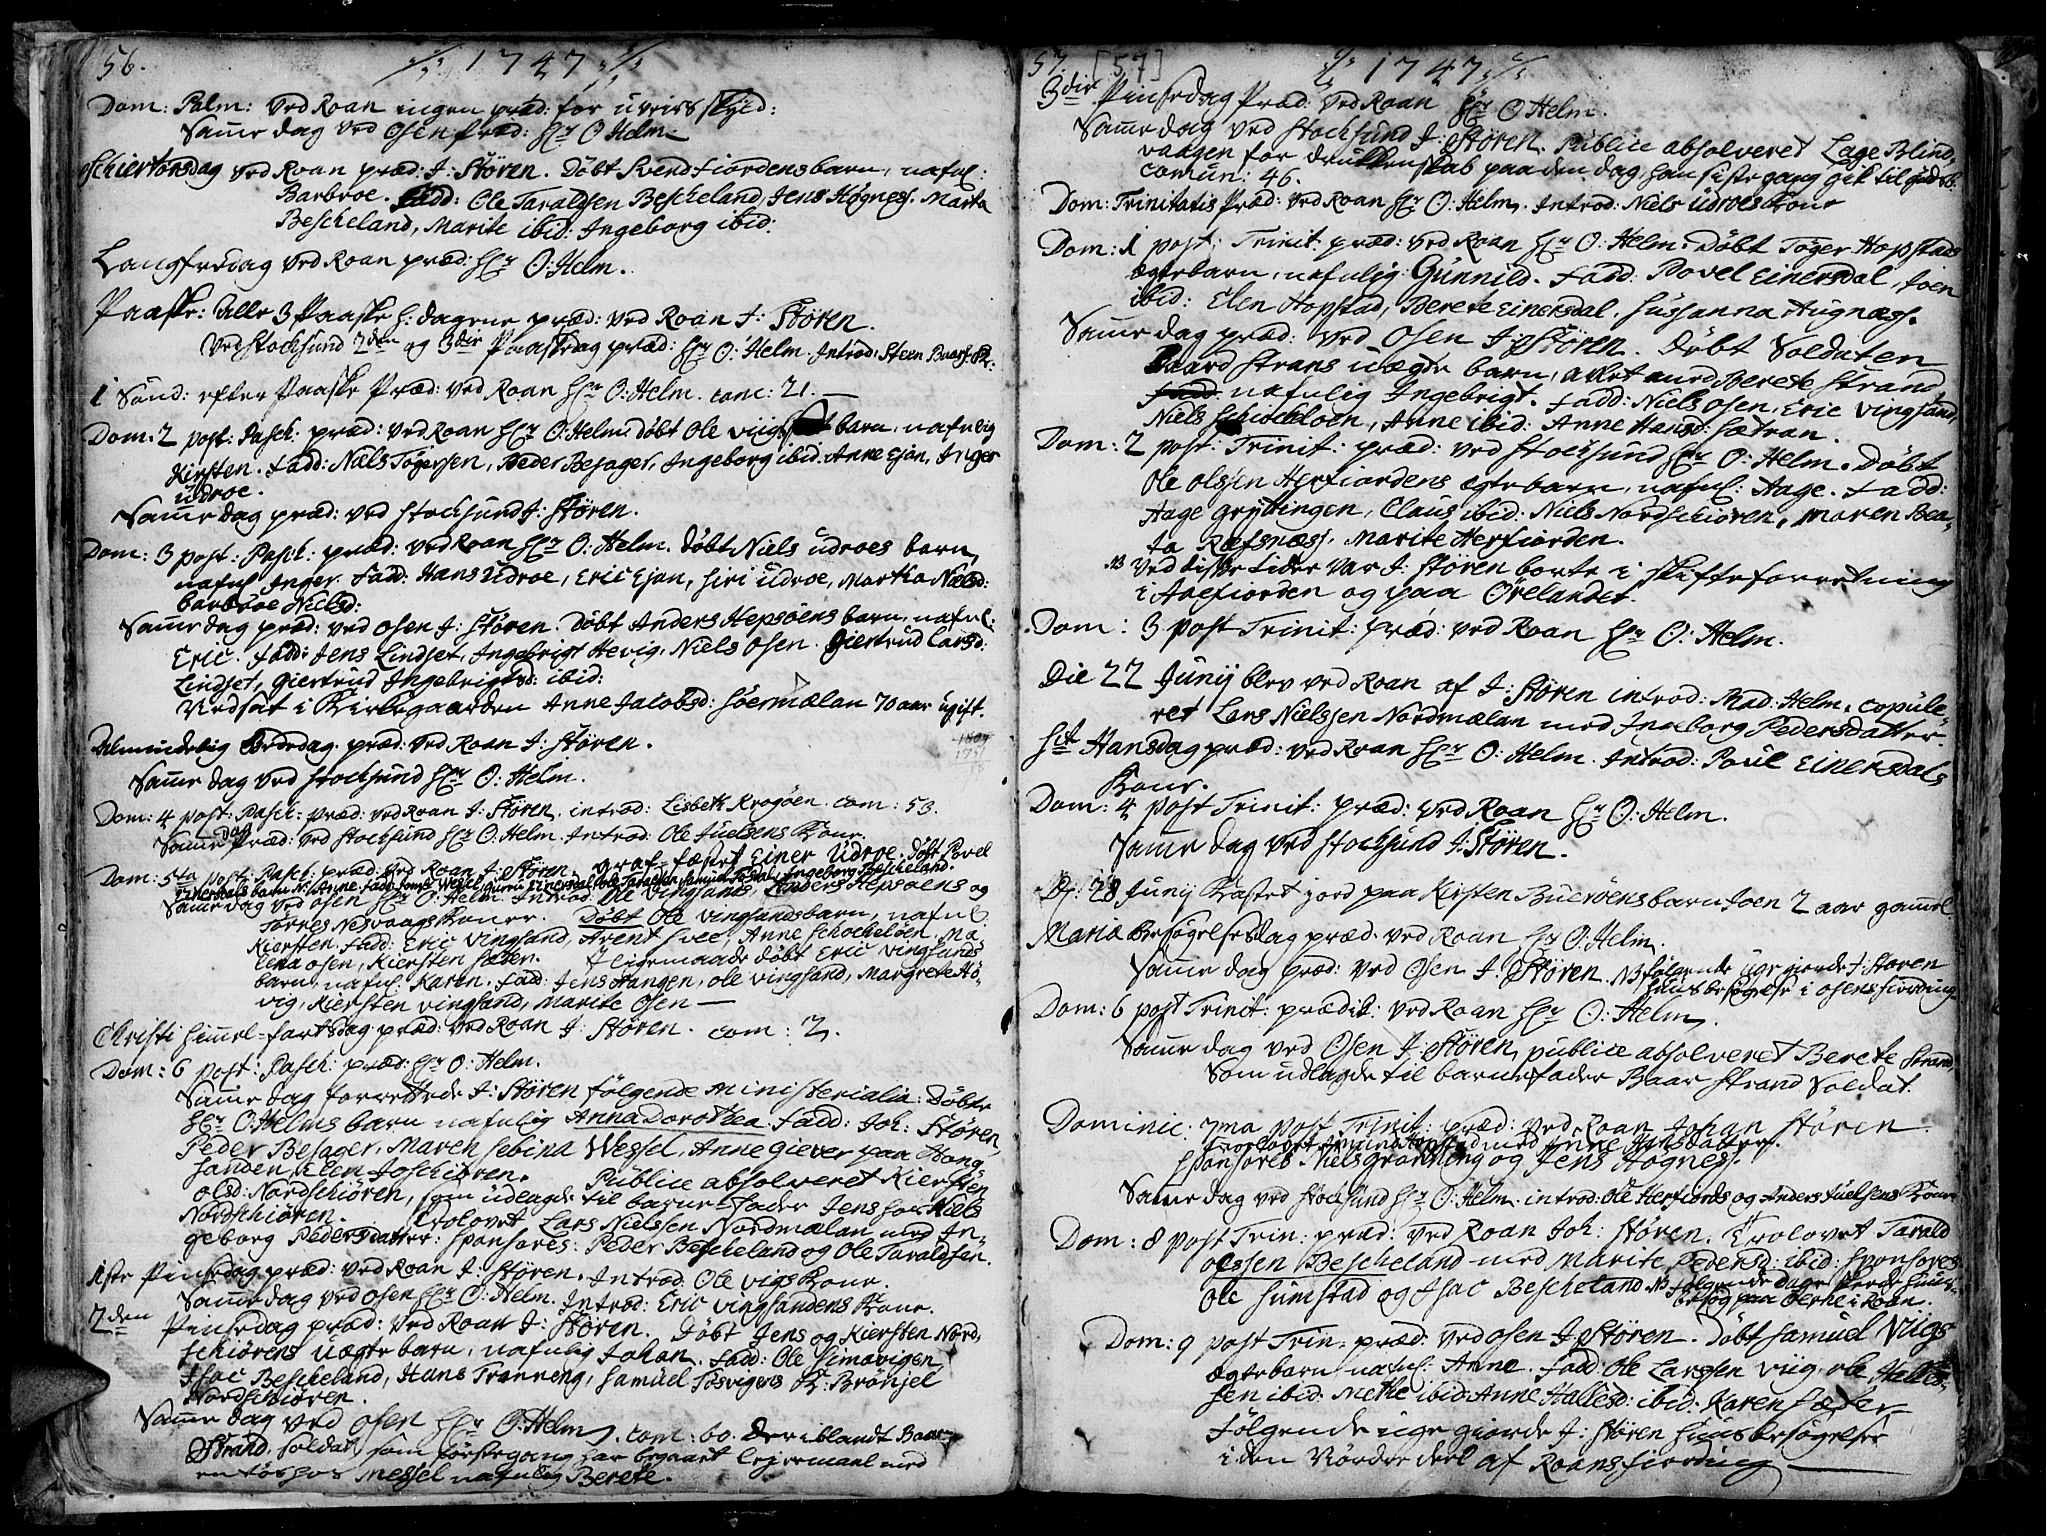 56.
1747
Dom: Palm: Ved Roan ingen præd: for uveirs skyld:
Samme dag ved Osen præd: Hr O: Helm.
Schiertorsdag ved Roan præd: J: Stören. Döbt Svend Fiordens barn, nafnl:
Barbroe. Fadd: Ole Taraldsen Bescheland, Jens Høgness. Marta
Bescheland, Marite ibid: Ingeborg ibid:
Langfredag ved Roan præd: Hr O: Helm.
Paaske: Alle 3 Paaske H: dagene præd: ved Roan J: Stören.
Ved Stocksund 2den og 3die Paaskedag præd: Hr O: Helm. Introd: Steen
1 Sönd: efter Paaske Præd: ved Roan Hr O: Helm. com: 21.
Dom: 2 post: Pasch: præd: ved Roan Hr O: Helm. döbt Ole Viigs barn, nafnlig
Kirsten. Fadd: Niels Tögersen, Peder Besager, Ingeborg ibid: Anne Ejan, Inger
Udroe.
Samme dag præd: ved Stocksund J: Stören.
Dom: 3 post: Pasch: præd: ved Roan Hr O: Helm. döbt Niels Udroes barn,
nafnl Inger. Fadd: Hans Udroe, Eric Ejan, Siri Udroe, Martha Nielsd:
barbroe Nielsd:
Samme dag præd: ved Osen J: Stören. Döbt Anders Hepsöens barn, nafnl:
Eric. Fadd: Jens Lindset, Ingebrigt Hevig, Niels Osen. Giertrud Larsd:
Lindset, Giertrud Ingebrigtsd: ibid:
Nedsat i Kirkegaarden Anne Jacobsd: Söermælan 70 aar ugift.
Almindelig Bededag præd: ved Roan J: Stören.
Samme dag ved Stocksund Hr O: Helm.
Dom: 4 post: Pasch: præd: ved Roan J: Stören. introd: Lisbeth Kragöen. com: 53.
dag
Samme Præd: ved Stocksund Hr O: Helm. Introd: Ole Juelsens Kone.
Dom: 5ta post: Pasch: præd: ved Roan J: Stören. graf-fæstet Einer Udroe. döbt Povel
Einersdals barn N: Anne. Fadd: Wessel, Einersdal, Ole Taraldsen, Ingeborg Bescheland.
Samme dag ved Osen Hr O: Helm. Introd: Ole Vingsands, Anders Hepsöens og
Torres Nesvaags Koner. Döbt Ole Vingsands barn, nafnl:
Kiersten. Fadd: Eric Vingsand, Arent Svee, Anne Schockelöen, Ma-
lena Osen, Kiersten Sæter. Ligemaade döbt Eric Vingsands
barn, nafnl: Karen. Fadd: Jens Hangen, Ole Vingsand, Margrete Hö-
vig, Kiersten Vingsand, Marite Osen —
Christi Himmel-fartsdag præd: ved Roan J: Stören. com: 2.
Dom: 6 post: Pasch: præd: Hr O: Helm.
Samme dag forrettede J: Stören fölgende Ministerialia: Döbte
Hr O: Helms barn nafnlig Anna Dorothea. Fadd: Joh: Stören,
Peder Besager, Maren Sebina Wessel, Anne Giever paa Hong-
sanden, Elen Joschiören. Publice absolveret Kiersten
Olsd: Nordschiören, som udlagde til barne-fader Jens Niels
Nordschiören. Trolovet Lars Nielssen Nordmælan med In-
geborg Pedersdatter: Sponsores: Peder Bescheland og Ole Taraldsen.
1ste Pinsedag præd: ved Roan J: Stören. Introd: Ole Vigs Kone.
Samme dag ved Osen Hr O: Helm. Introd: Eric Vingsandens Kone.
2den Pinsedag præd: ved Roan J: Stören. Döbt Jens og Kiersten Nord-
schiörens uægte barn, nafnlig Johan. Fadd: Ole Simavigen
Isac Bescheland, Hans Trönneng, Samuel Tösvigens K: Brönjel
Nordschiören.
Samme dag ved Osen Hr O: Helm, com: 60. der iblandt Baar
Strand, Soldat, som förstegang har begaaet lejermaal med
en tös hos Messel nafnlig Berete.
57. [57]
1747
3die Pinsedag Præd: ved Roan Hr O: Helm.
Samme dag ved Stocksund J: Stören. Publice absolveret Lage Blind-
vaagen for drukkenskab paa den dag, han siste gang gik til Guds b.
comun: 46.
Dom: Trinitatis Præd: ved Roan Hr O: Helm. Introd: Niels Udroes Kone
Dom: 1 post: Trinit: præd: ved Roan Hr O: Helm. Döbt Töger Hopstads
ægte barn, nafnlig: Gunnild. Fadd: Povel Einersdal, Joen
ibid: Elen Hopstad, Berete Einersdal, Sussanna Hugnæss.
Samme dag præd: ved Osen J: Stören. Döbt Soldaten
Baard Strans uægte barn, avlet med Berete Strand,
nafnlig Ingebrigt. Fadd: Niels Osen, Eric Vingsand,
Niels Schockloen, Anne ibid: Anne Hansd: Sætran.
Dom: 2 post: Trinit: præd: ved Stocksund Hr O: Helm. Döbt
Ole Olssen Herfiordens ægte barn, nafnl: Aage. Fadd:
Aage Gryttingen, Claus ibid: Niels Nordschiören, Maren Bea-
ta Ræfsnæss, Marite Herfiorden.
NB Ved disse tider var J: Stören borte i Skifteforretning
i Aaefiorden og paa Örelandet.
Dom: 3 post Trinit: præd: ved Roan Hr O: Helm.
Die 22 Junij blev ved Roan af J: Stören introd: Mad: Helm. copule-
ret Lars Nielssen Nordmælan med Ingeborg Pedersdatter.
St Hansdag præd: ved Roan Hr O: Helm. Introd: Poul Einersdals
Kone.
Dom: 4 post Trinit: præd: ved Roan Hr O: Helm.
Samme dag ved Stocksund J: Stören.
D: 28 Junij Kastet jord paa Kirsten Bueröens barn Joen 2 aar gammel
Mariæ Besögelses dag præd: ved Roan Hr O: Helm.
Samme dag præd: ved Osen J: Stören. NB fölgende uge giorde J: Stören
huusbesögelse i Osens fiording.
Dom: 6 post Trinit: prædik: ved Roan Hr O: Helm.
Samme dag ved Osen J: Stören, publice absolveret Berete Strand,
som udlagde til barnefader Baar Strand Soldat.
Dominic: 7ma post Trinit: præd: ved Roan Johan Stören.
Trolovet Amund Hopstad med Anne Hansdatter.
Sponsores Niels Grönning og Jens Högness.
Samme dag ved Stocksund Hr O: Helm. introd: Ole Herfiords og Anders Juelsens Koner
Dom: 8 post Trin: præd: ved Roan Joh: Stören. Trolovet Tarald
Olssen Bescheland med Marite Pedersd: ibid: Sponsores
Ole Sumstad og Isac Bescheland. NB fölgende dage skede huus-
besög paa i Roan.
Dom: 9 post Trin: præd: ved Osen J: Stören. Döbt Samuel Viigs
ægte barn nafnl: Anne. Fadd: Ole Larssen Viig, Ole Halles-
sen ibid: Methe ibid: Anne Hallesd: ibid: Karen Sæter
Fölgende uge giorde J: Stören huusbesögelse
i den Nördre deel af Roans fiording